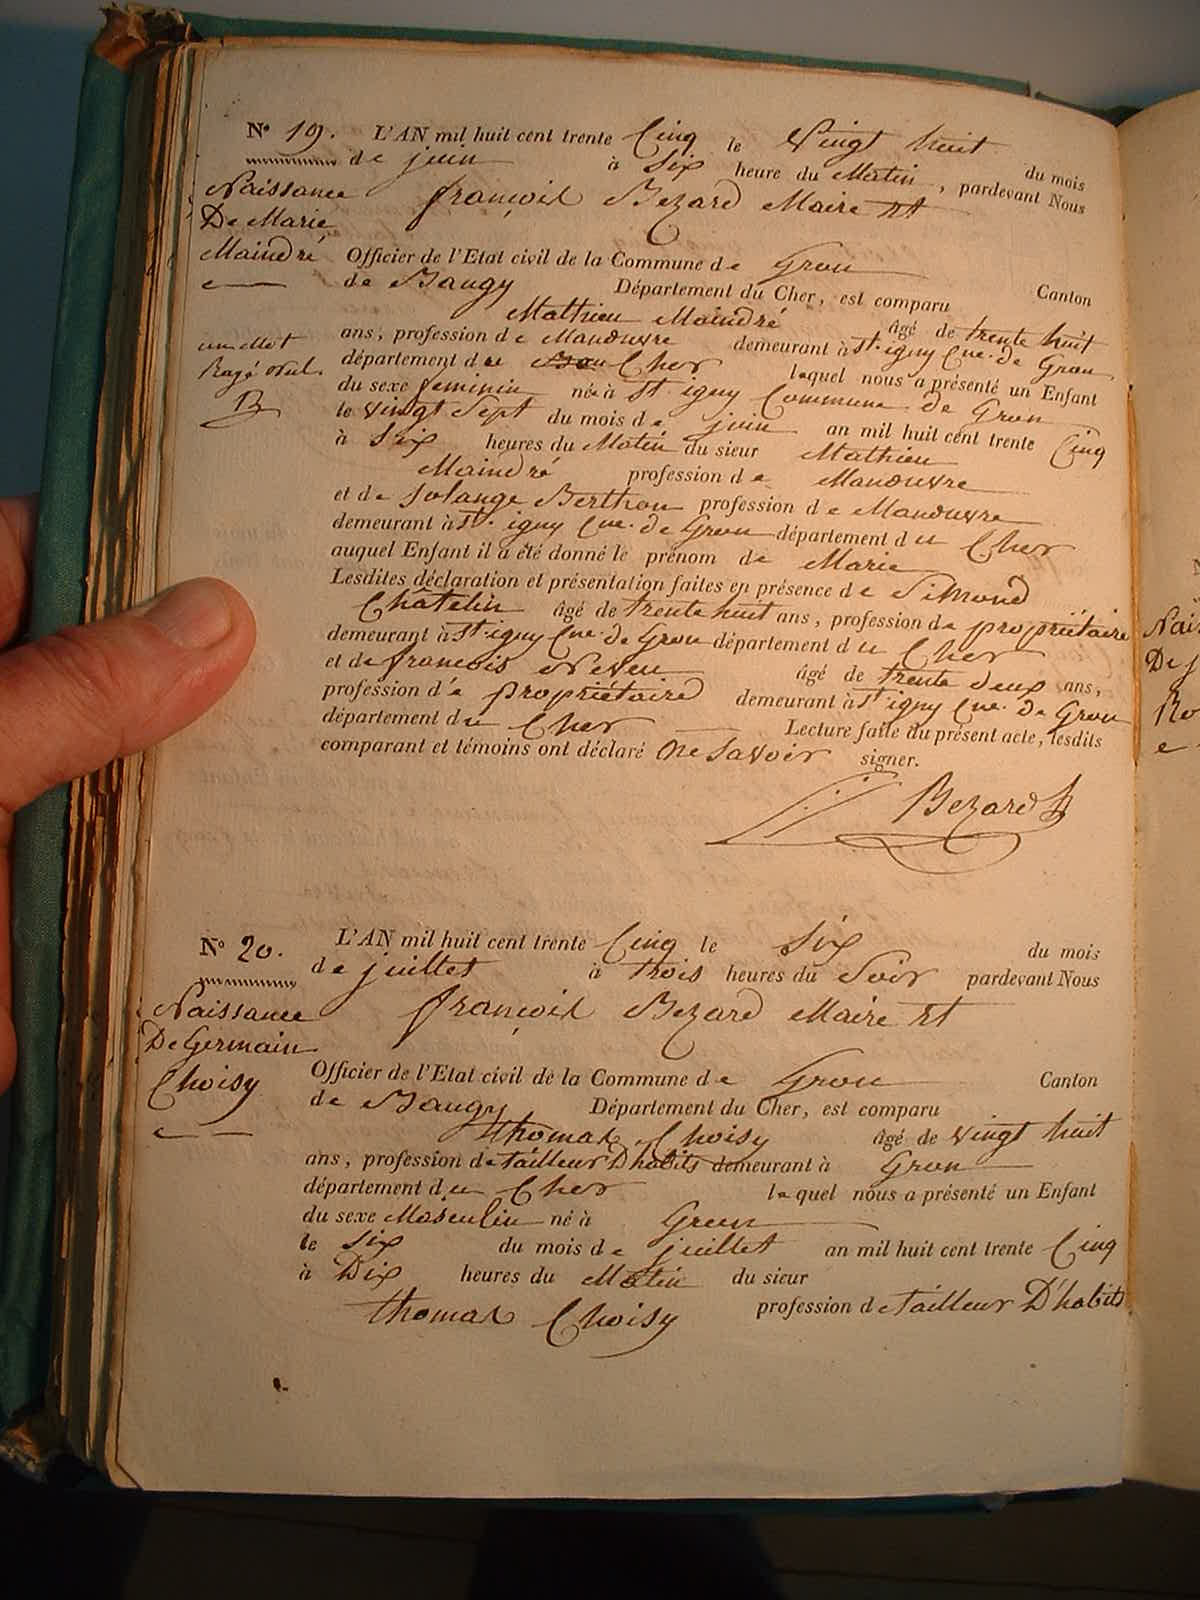 N° 19. L'AN mil huit cent trente Cinq le Vingt huit du mois
de juin à Six heure du Matin, pardevant Nous
Naissance
De Marie
Maindré
françois Bezard Maire Et
Officier de l'Etat civil de la Commune de Gron Canton
de Baugy Département du Cher, est comparu
Mathieu Maindré âgé de trente huit
ans, profession de Manœuvre demeurant à St. igny Cne. de Gron
un Mot
Rayé Nul.
B
département du Cher lequel nous a présenté un Enfant
du sexe feminin née à St. igny Commune de Gron
le vingt Sept du mois de juin an mil huit cent trente Cinq
à Six heures du Matin du sieur Mathieu
Maindré profession de Manœuvre
et de Solange Berthon profession de Manœuvre
demeurant à St. igny Cne. de Gron département du Cher
auquel Enfant il a été donné le prénom de Marie
Lesdites déclaration et présentation faites en présence de Simond
Châtelin âgé de trente huit ans, profession de propriétaire
demeurant à St. igny Cne. de Gron département du Cher
et de françois Neveu âgé de trente deux ans,
profession de propriétaire demeurant à St igny Cne. de Gron
département du Cher Lecture faite du présent acte, lesdits
comparant et témoins ont déclaré Ne Savoir signer.
Bezard
N° 20. L'AN mil huit cent trente Cinq le Six du mois
de juillet à trois heures du Soir pardevant Nous
Naissance
De Germain
Choisy
françois Bezard Maire Et
Officier de l'Etat civil de la Commune de Gron Canton
de Baugy Département du Cher, est comparu
thomas Choisy âgé de vingt huit
ans, profession de tailleur D'habits demeurant à Gron
département du Cher lequel nous a présenté un Enfant
du sexe Masculin né à Gron
le Six du mois de juillet an mil huit cent trente Cinq
à Dix heures du Matin du sieur
thomas Choisy profession de tailleur D'habits